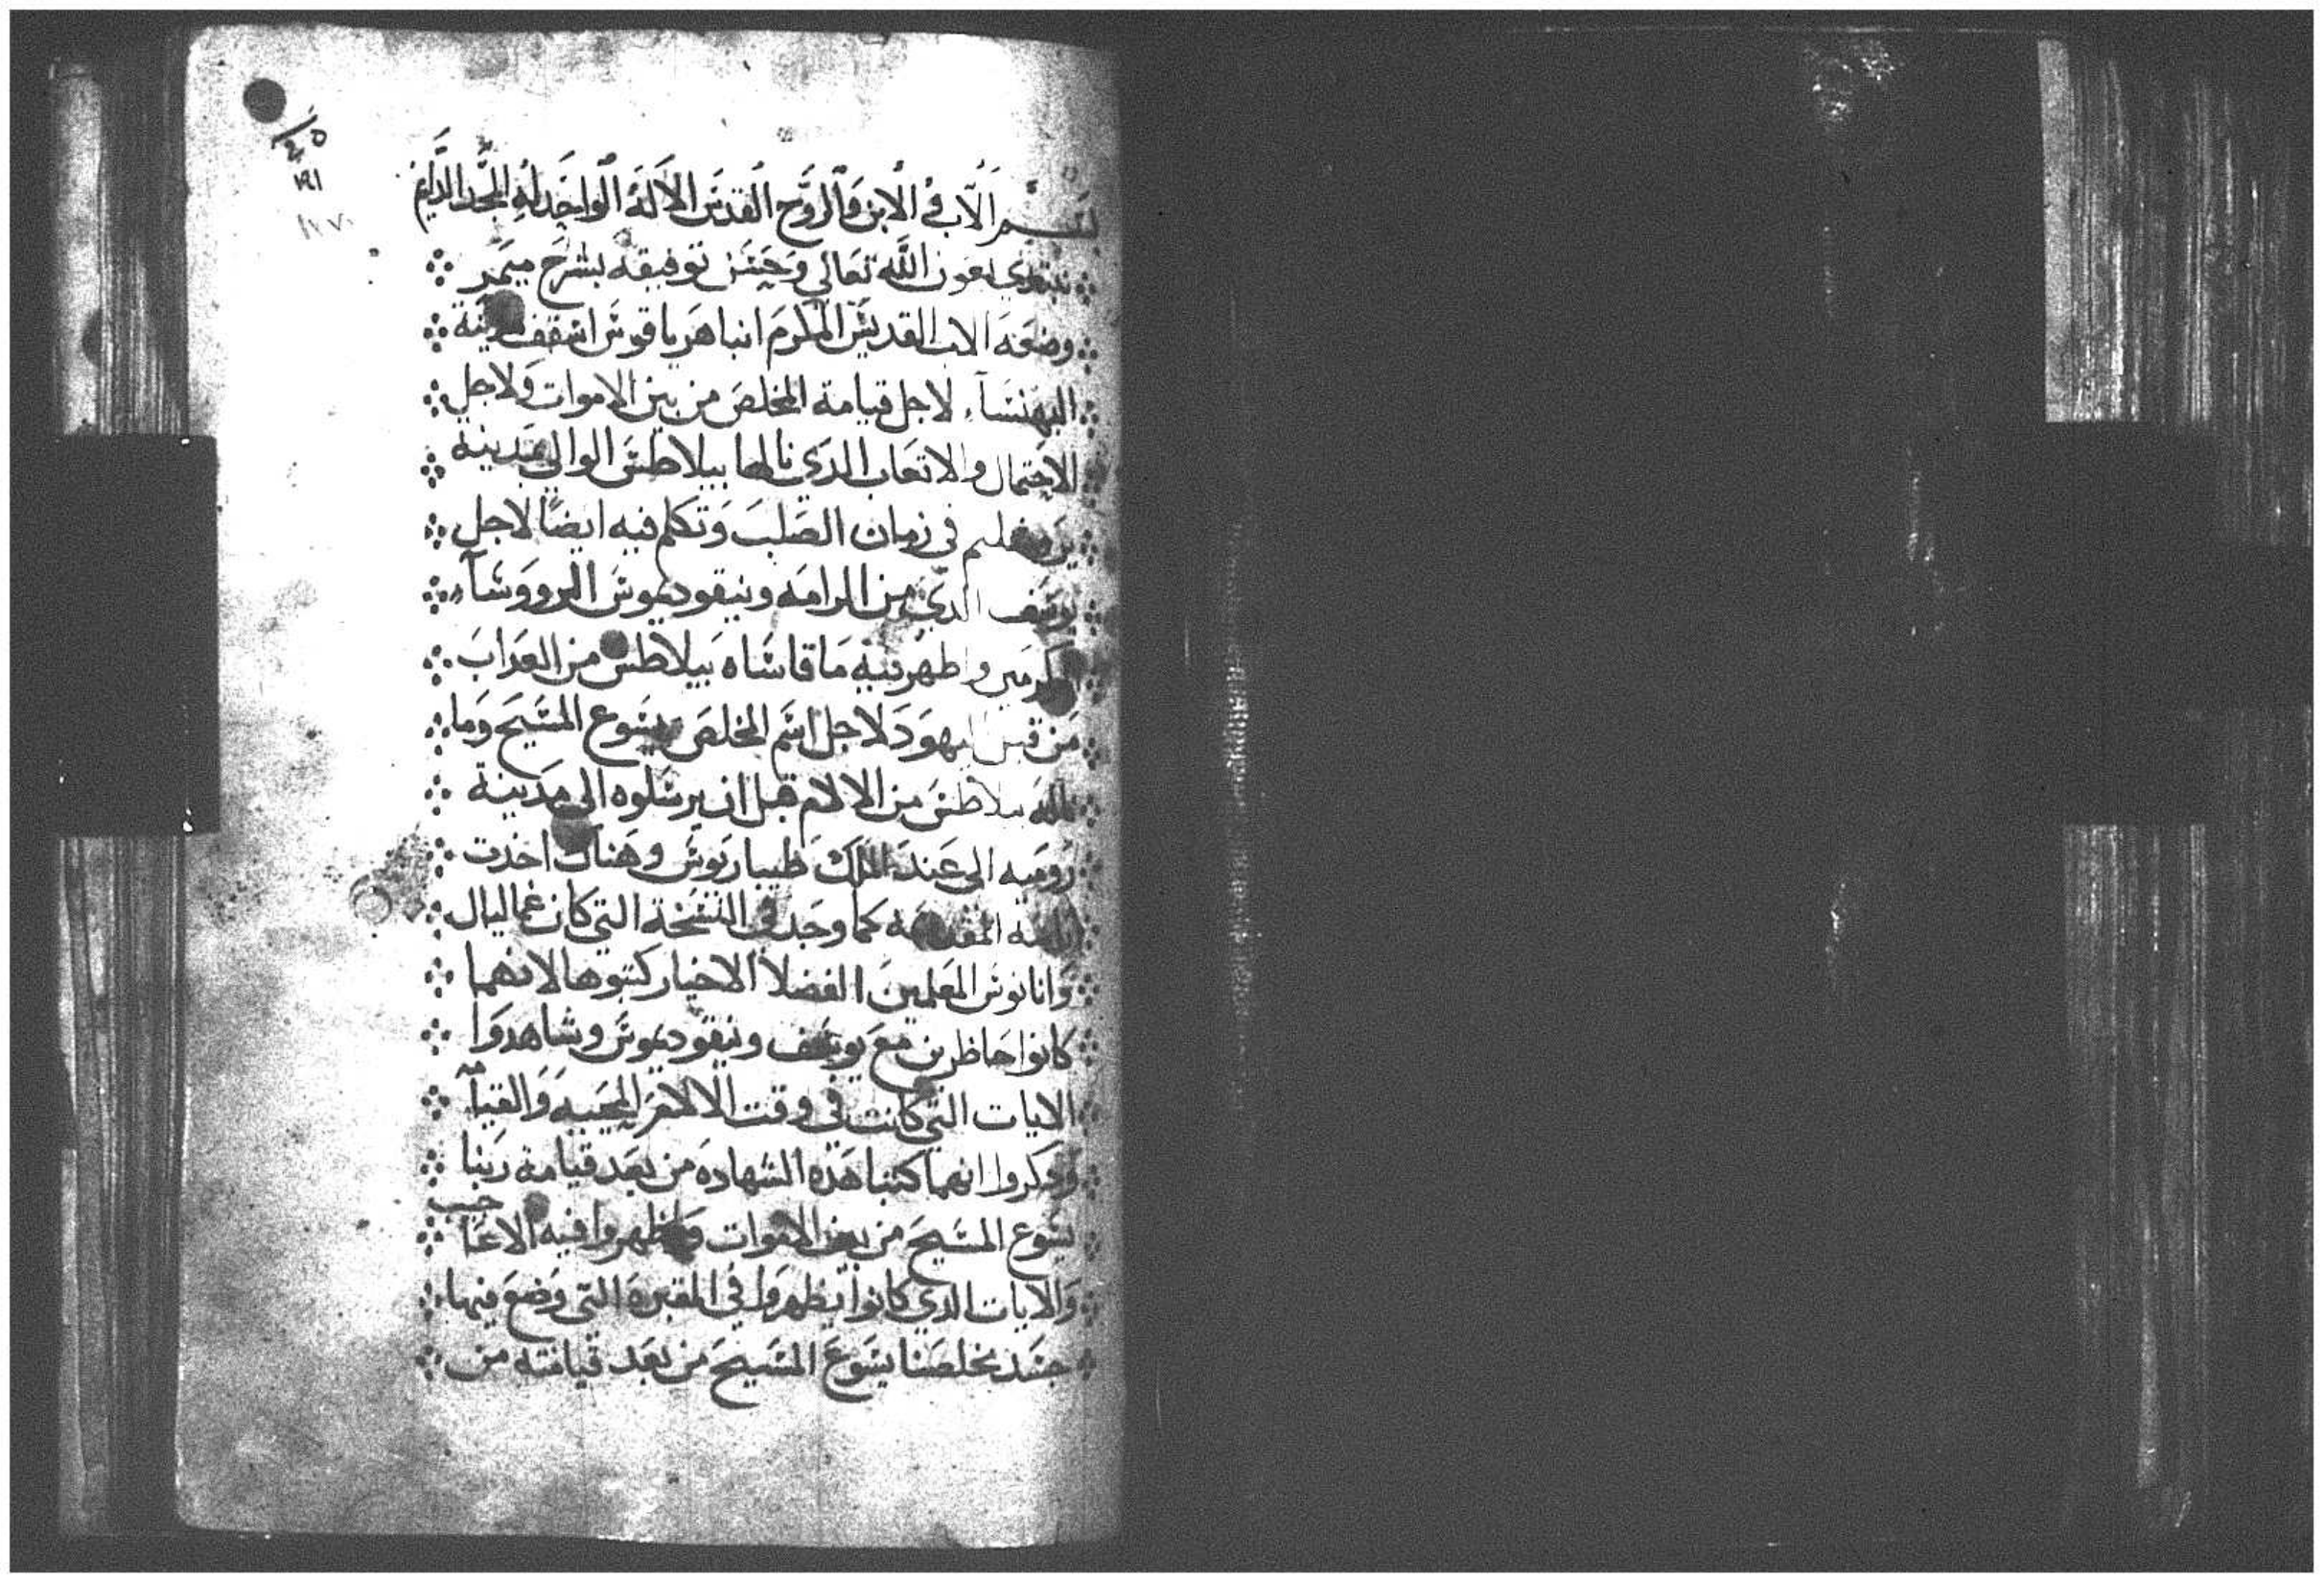 ٤٥
١٩١
بسم الاب والابن والروح القدس الاله الواحد له المجد الدايم
نبتدي بعون الله تعالي وحسن توفيقه بشرح ميمر
وضعه الاب القديس المكرم انبا هرياقوس اسقف مدينة
البهنساء لاجل قيامة المخلص من بين الاموات ولاجل
الاحتمال والاتعاب الدي نالها بيلاطس الوالي بمدينة
يروشليم في زمان الصلب وتكلم فيه ايضًا لاجل
يوسف الدي من الرامه ونيقوديموس الرووسآء
المكرمين واظهر فيه ما قاساه بيلاطس من العداب
من قبل اليهود لاجل اسم المخلص يسوع المسيح وما
ناله بيلاطس من الالام قبل ان يرسلوه الي مدينة
روميه الي عند الملك طيباريوس وهناك اخدت
راسه المقدسه كما وجد في النسخة التي كان غماليال
وانانوس المعلمين الفضلا الاخيار كتبوها لانهما
كانوا حاظرين مع يوسف ونيقوديموس وشاهدوا
الايات التي كانت في وقت الالام المحييه والقيامه
ودكروا انهما كتبنا هده الشهاده من بعد قيامة ربنا
يسوع المسيح من بين الاموات واظهروا فيه الاعاجيب
والايات الدي كانوا يظهروا في المقبره التي وضع فيها
جسد مخلصنا يسوع المسيح من بعد قيامته من